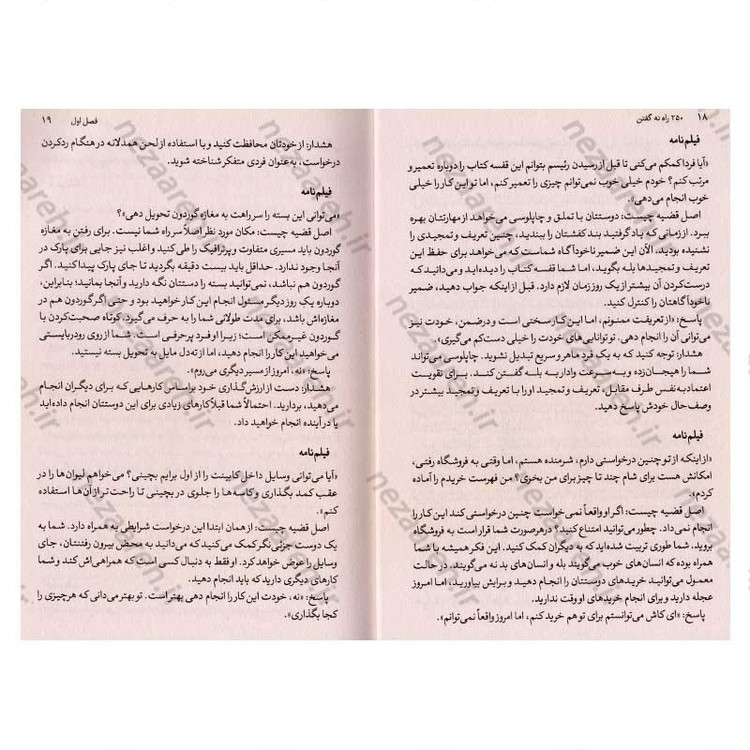 ۱۸ ۲۵۰ راه نه گفتن
فیلم‌نامه
«آیا فردا کمکم می‌کنی تا قبل از رسیدن رئیسم بتوانم این قفسه کتاب را دوباره تعمیر و
مرتب کنم؟ خودم خیلی خوب نمی‌توانم چیزی را تعمیر کنم، اما تو این کار را خیلی
خوب انجام می‌دهی.»
اصل قضیه چیست: دوستتان با تملق و چاپلوسی می‌خواهد از مهارتتان بهره
ببرد. از زمانی که یاد گرفتید بند کفشتان را ببندید، چنین تعریف و تمجیدی را
نشنیده بودید. الآن این ضمیر ناخودآگاه شماست که می‌خواهد برای حفظ این
تعریف و تمجیدها بله بگوید، اما شما قفسه کتاب را دیده‌اید و می‌دانید که
درست‌کردن آن بیشتر از یک روز زمان لازم دارد. قبل از اینکه جواب دهید، ضمیر
ناخودآگاهتان را کنترل کنید.
پاسخ: «از تعریفت ممنونم، اما این کار سختی است و درضمن، خودت نیز
می‌توانی آن را انجام دهی. تو توانایی‌های خودت را خیلی دست‌کم می‌گیری».
هشدار: توجه کنید که به یک فرد ماهر و سریع تبدیل نشوید. چاپلوسی می‌تواند
شما را هیجان‌زده و به سرعت وادار به بله گفتن کند. برای تقویت
اعتمادبه‌نفس طرف مقابل، تعریف و تمجید او را با تعریف و تمجید بیشتر در
وصف حال خودش پاسخ دهید.
فیلم‌نامه
«از اینکه از تو چنین درخواستی دارم، شرمنده هستم، اما وقتی به فروشگاه رفتی،
امکانش هست برای شام چند تا چیز برای من بخری؟ من فهرست خریدم را آماده
کردم».
اصل قضیه چیست: اگر او واقعاً نمی‌خواست چنین درخواستی کند این کار را
انجام نمی‌داد. چطور می‌توانید امتناع کنید؟ درهرصورت شما قرار است به فروشگاه
بروید. شما طوری تربیت شده‌اید که به دیگران کمک کنید. این فکر همیشه با شما
همراه بوده که انسان‌های خوب می‌گویند بله و انسان‌های بد نه می‌گویند. در حالت
معمول می‌توانید خریدهای دوستتان را انجام دهید و برایش بیاورید، اما امروز
عجله دارید و برای انجام خریدهای او وقت ندارید.
پاسخ: «ای کاش می‌توانستم برای تو هم خرید کنم، اما امروز واقعاً نمی‌توانم».
فصل اول ۱۹
هشدار: از خودتان محافظت کنید و با استفاده از لحن همدلانه در هنگام ردکردن
درخواست، به‌عنوان فردی متفکر شناخته شوید.
فیلم‌نامه
«می‌توانی این بسته را سر راهت به مغازه گوردون تحویل دهی»؟
اصل قضیه چیست: مکان مورد نظر اصلاً سر راه شما نیست. برای رفتن به مغازه
گوردون باید مسیری متفاوت و پرترافیک را طی کنید و اغلب نیز جایی برای پارک در
آنجا وجود ندارد. حداقل باید بیست دقیقه بگردید تا جای پارک پیدا کنید. اگر
گوردون هم نباشد، نمی‌توانید بسته را دستتان نگه دارید و آنجا بمانید؛ بنابراین،
دوباره یک روز دیگر مسئول انجام این کار خواهید بود و حتی اگر گوردون هم در
مغازه‌اش باشد، برای مدت طولانی شما را به حرف می‌گیرد. کوتاه صحبت‌کردن با
گوردون غیرممکن است؛ زیرا او فرد پرحرفی است. شما از روی رودربایستی
می‌خواهید این کار را انجام دهید، اما از ته‌دل مایل به تحویل بسته نیستید.
پاسخ: «نه، امروز از مسیر دیگری می‌روم».
هشدار: دست از ارزش‌گذاری خود براساس کارهایی که برای دیگران انجام
می‌دهید، بردارید. احتمالاً شما قبلاً کارهای زیادی برای این دوستتان انجام داده‌اید
یا در آینده انجام خواهید داد.
فیلم‌نامه
«آیا می‌توانی وسایل داخل کابینت را از اول برایم بچینی؟ می‌خواهم لیوان‌ها را در
عقب کمد بگذاری و کاسه‌ها را جلوی در بچینی تا راحت‌تر از آن‌ها استفاده
کنم».
اصل قضیه چیست: از همان ابتدا این درخواست شرایطی به همراه دارد. شما به
یک دوست جزئی‌نگر کمک می‌کنید که می‌دانید به محض بیرون رفتنتان، جای
وسایل را عوض خواهد کرد. او فقط به دنبال کسی است که همراهی‌اش کند و شما
کارهای دیگری دارید که باید انجام دهید.
پاسخ: «نه، خودت این کار را انجام دهی بهتر است. تو بهتر می‌دانی که هر چیزی را
کجا بگذاری».
nezaareh.ir